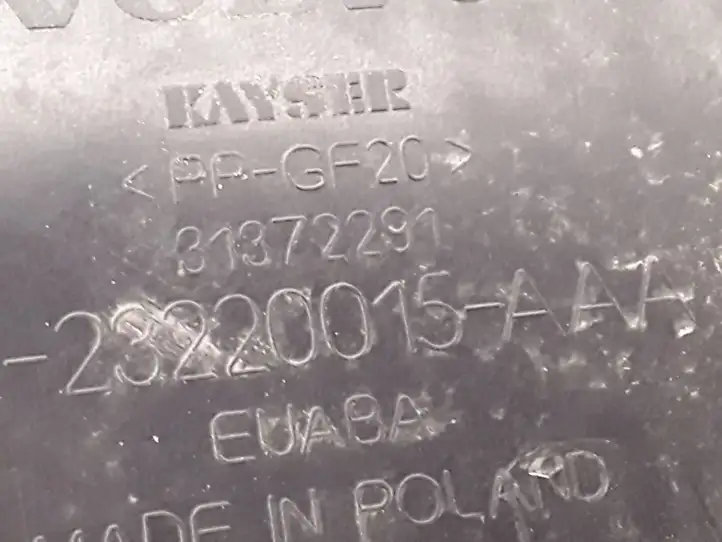 VOLVO
KAYSER
<PP-GF20>
31372291
-23220015-AAA
EUABA
MADE IN POLAND